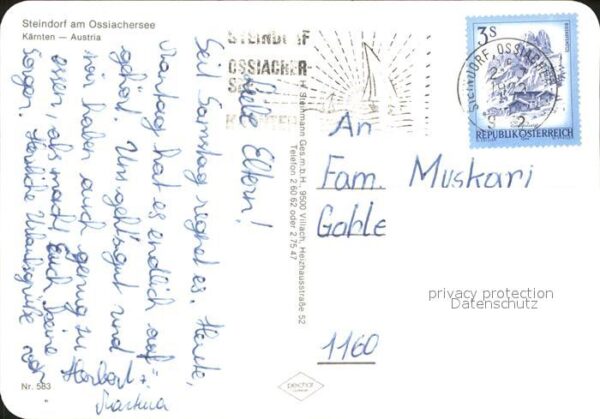 Steindorf am Ossiachersee
Kärnten — Austria
STEINDORF
OSSIACHER-
3s
REPUBLIK ÖSTERREICH
STEINDORF OSSIACHERSEE
Liebe Eltern!
Seit Samstag regnet es. Heute,
Montag hat es endlich auf-
gehört. Uns geht's gut und
wir haben auch genug zu
essen, also macht Euch keine
Sorgen. Herzliche Urlaubsgrüße von
Herbert +
Martina
An
Fam. Muskari
Gable
1160
H. Steinmann Ges.m.b.H., 9500 Villach, Heizhausstraße 52
Telefon 2 60 62 oder 2 75 47
privacy protection
Datenschutz
Nr. 583
pechar